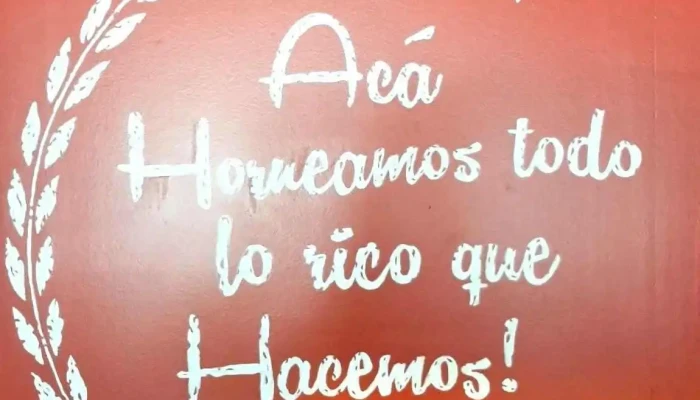 Acá
Horneamos todo
lo rico que
Hacemos!